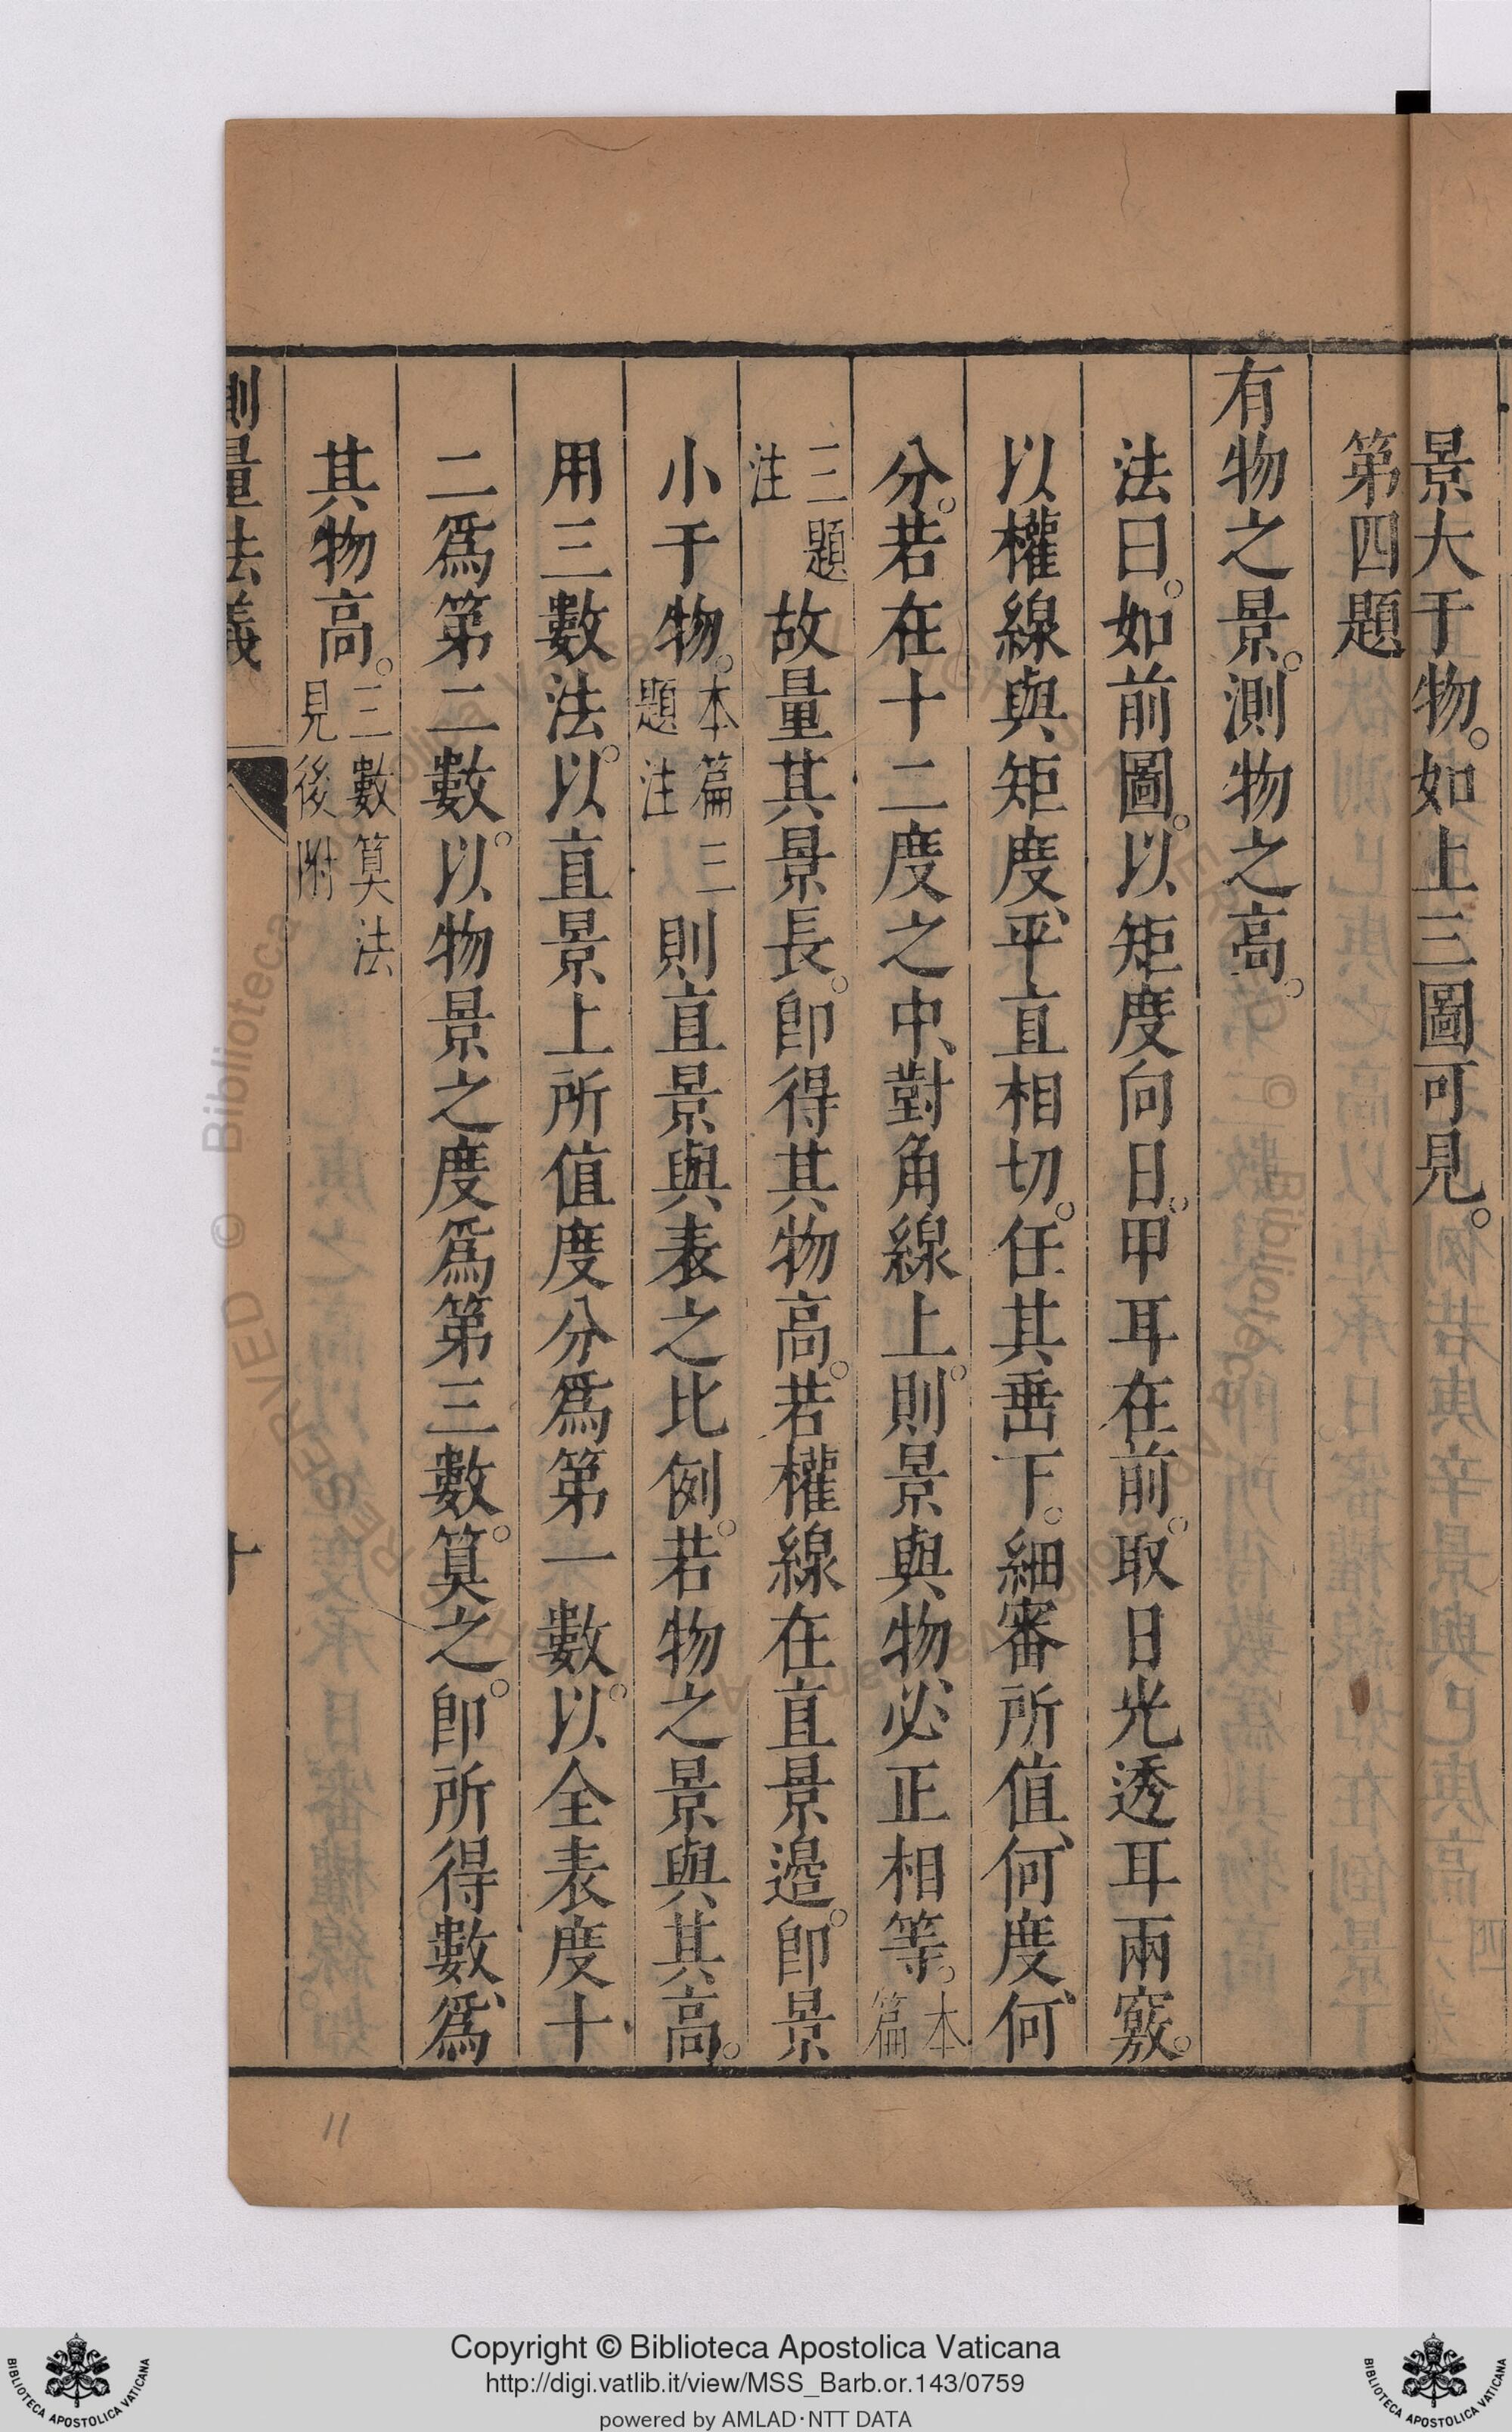 景大于物。如上三圖可見。
第四題
有物之景。測物之高。
法曰。如前圖。以矩度向日。甲耳在前。取日光透耳兩竅。
以權線與矩度平直相切。任其垂下。細審所值何度何
分。若在十二度之中、對角線上。則景與物必正相等。本篇
三題注故量其景長。即得其物高。若權線在直景邊。即景
小于物。本篇三題注則直景與表之比例。若物之景與其高。
用三數法。以直景上所值度分爲第一數。以全表度十
二爲第二數。以物景之度爲第三數。算之。即所得數爲
其物高。三數算法見後附
測量法義
十
11
© Biblioteca Apostolica Vaticana
Copyright © Biblioteca Apostolica Vaticana
http://digi.vatlib.it/view/MSS_Barb.or.143/0759
powered by AMLAD·NTT DATA
BIBLIOTECA APOSTOLICA VATICANA
BIBLIOTECA APOSTOLICA VATICANA